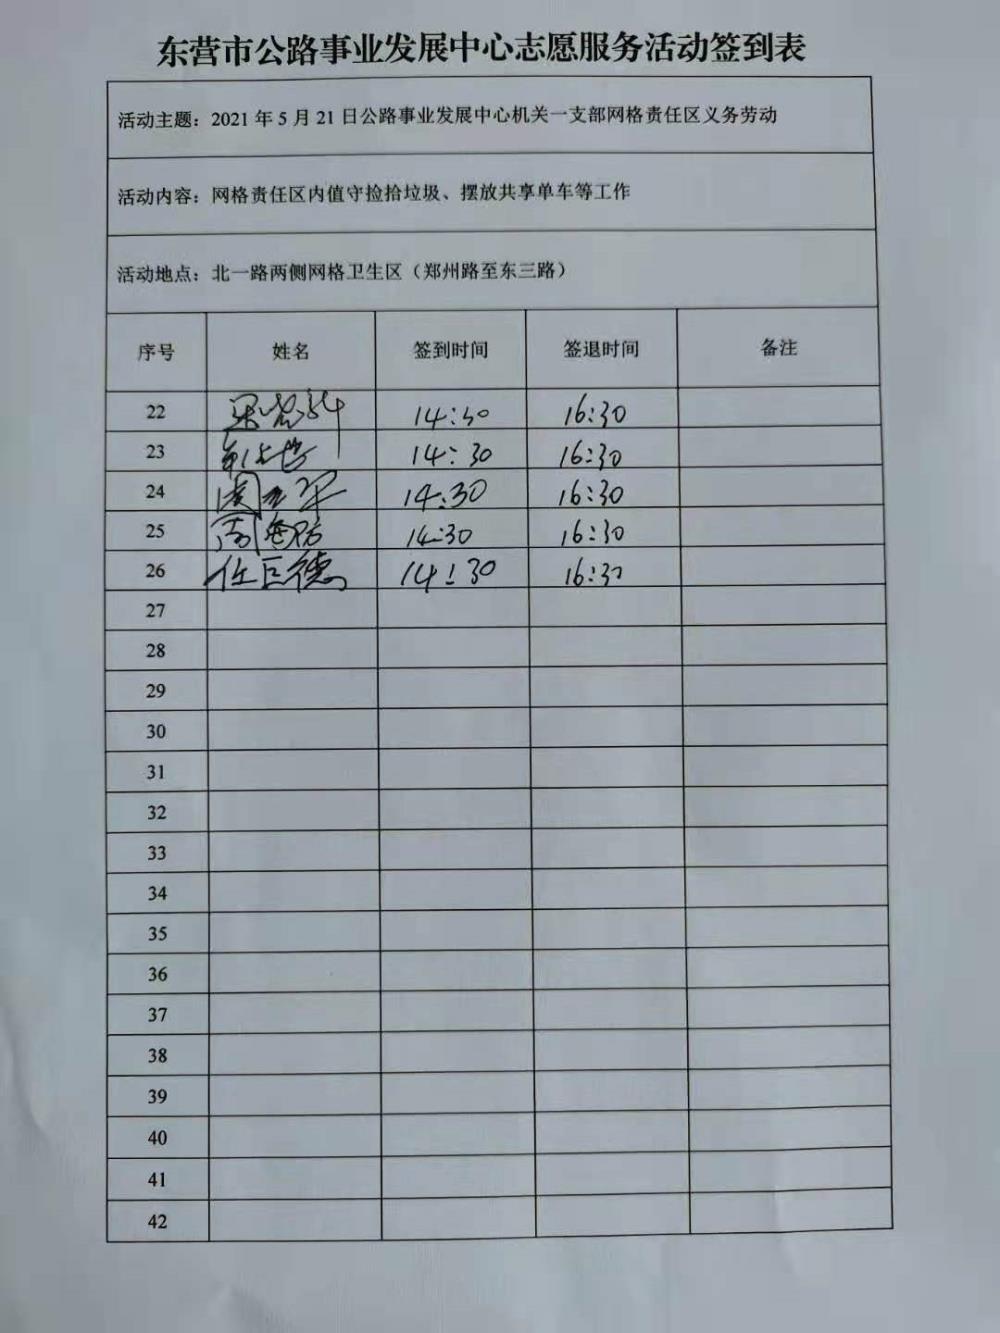 东营市公路事业发展中心志愿服务活动签到表
活动主题：2021年5月21日公路事业发展中心机关一支部网格责任区义务劳动
活动内容：网格责任区内值守捡拾垃圾、摆放共享单车等工作
活动地点：北一路两侧网格卫生区（郑州路至东三路）
序号 姓名 签到时间 签退时间 备注
22 14:30 16:30
23 14:30 16:30
24 14:30 16:30
25 14:30 16:30
26 任巨德 14:30 16:30
27
28
29
30
31
32
33
34
35
36
37
38
39
40
41
42